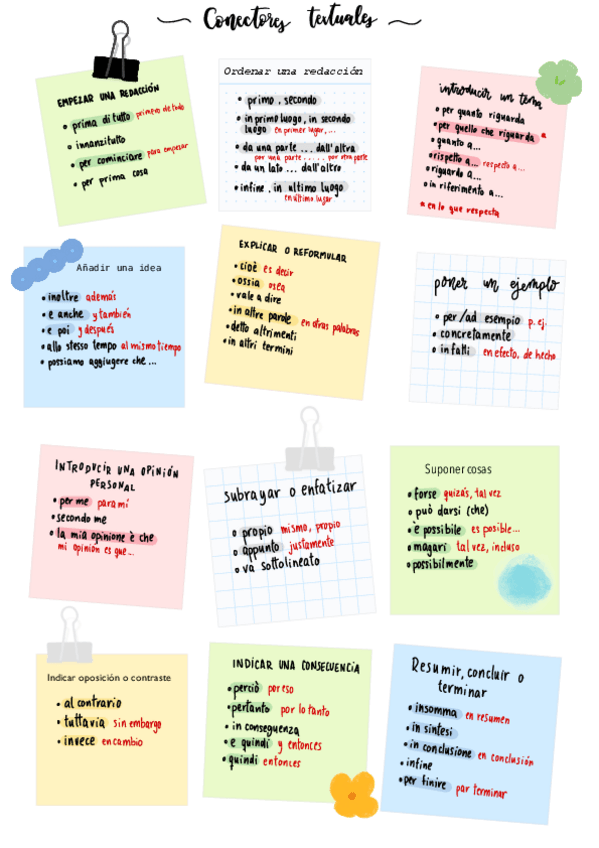 Conectores textuales
EMPEZAR UNA REDACCIÓN
• prima di tutto primero de todo
• innanzitutto
• per cominciare para empesar
• per prima cosa
Ordenar una redacción
• primo, secondo
• in primo luogo, in secondo
luogo en primer lugar,...
• da una parte ... dall'altra
por una parte ...... por otra parte
• da un lato ... dall'altro
• infine, in ultimo luogo
en último lugar
introducir un tema
• per quanto riguarda
• per quello che riguarda *
• quanto a...
• rispetto a... respecto a...
• riguardo a...
• in riferimento a...
* en lo que respecta
Añadir una idea
• inoltre además
• e anche y también
• e poi y después
• allo stesso tempo al mismo tiempo
• possiamo aggiugere che ...
EXPLICAR O REFORMULAR
• cioè es decir
• ossia osea
• vale a dire
• in altre parole en otras palabras
• detto altrimenti
• in altri termini
poner un ejemplo
• per/ad esempio p. ej.
• concretamente
• infatti en efecto, de hecho
INTRODUCIR UNA OPINIÓN
PERSONAL
• per me para mí
• secondo me
• la mia opinione è che
mi opinión es que...
subrayar o enfatizar
• propio mismo, propio
• appunto justamente
• va sottolineato
Suponer cosas
• forse quizás, tal vez
• può darsi (che)
• è possibile es posible...
• magari tal vez, incluso
• possibilmente
Indicar oposición o contraste
• al contrario
• tuttavia sin embargo
• invece en cambio
INDICAR UNA CONSECUENCIA
• perciò por eso
• pertanto por lo tanto
• in conseguenza
• e quindi y entonces
• quindi entonces
Resumir, concluir o
terminar
• insomma en resumen
• in sintesi
• in conclusione en conclusión
• infine
• per finire par terminar